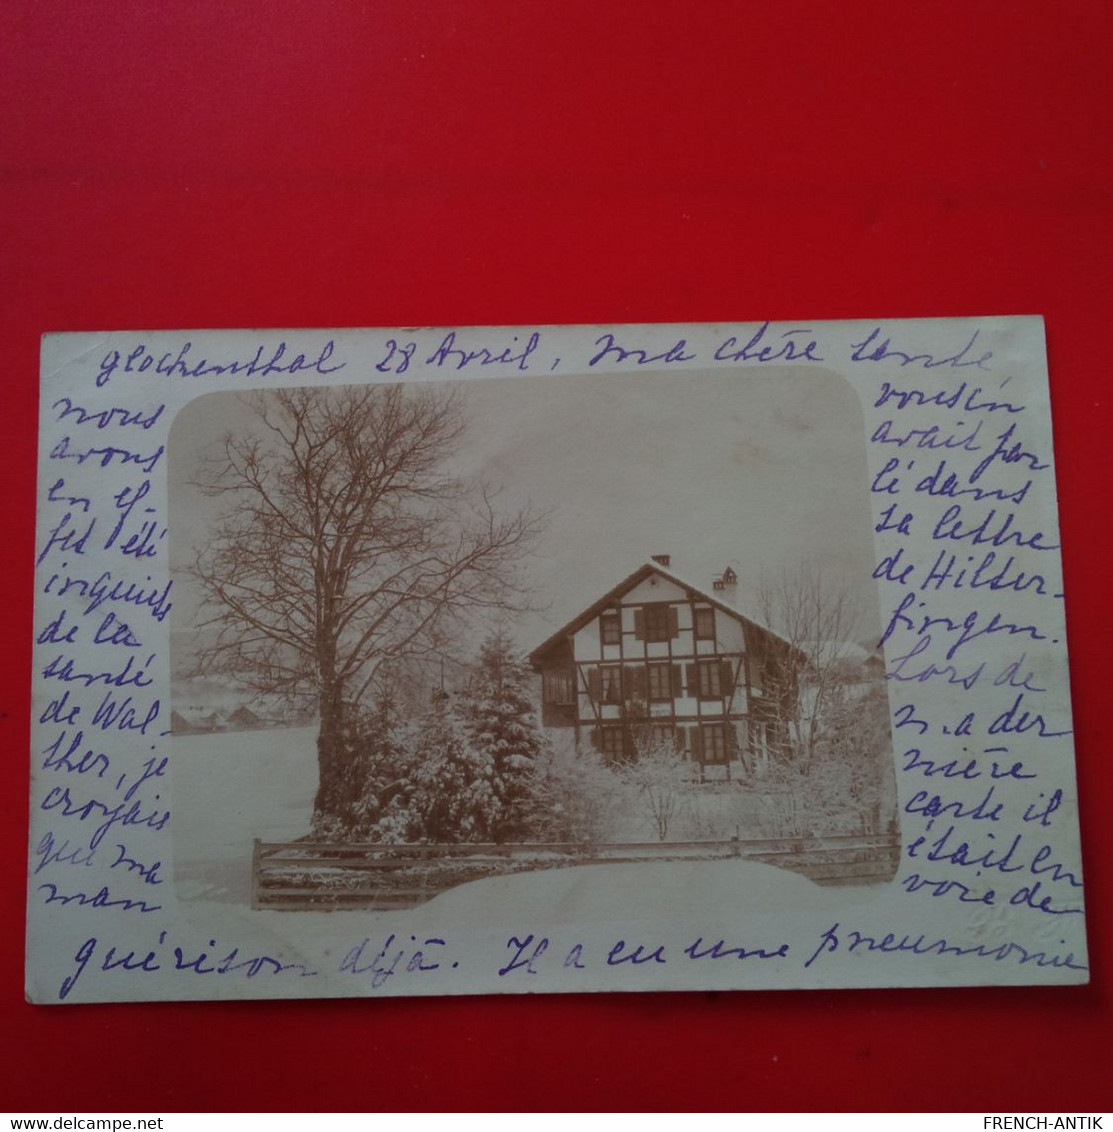 Glockenthal 28 Avril, ma chère tante
nous
avons
en ef-
fet été
inquiets
de la
santé
de Wal-
ther, je
croyais
que ma
man
vous en
avait par
lé dans
sa lettre
de Hilter-
fingen.
Lors de
m. a der
nière
carte il
était en
voie de
guérison déjà. Il a eu une pneumonie
delcampe.net
FRENCH-ANTIK